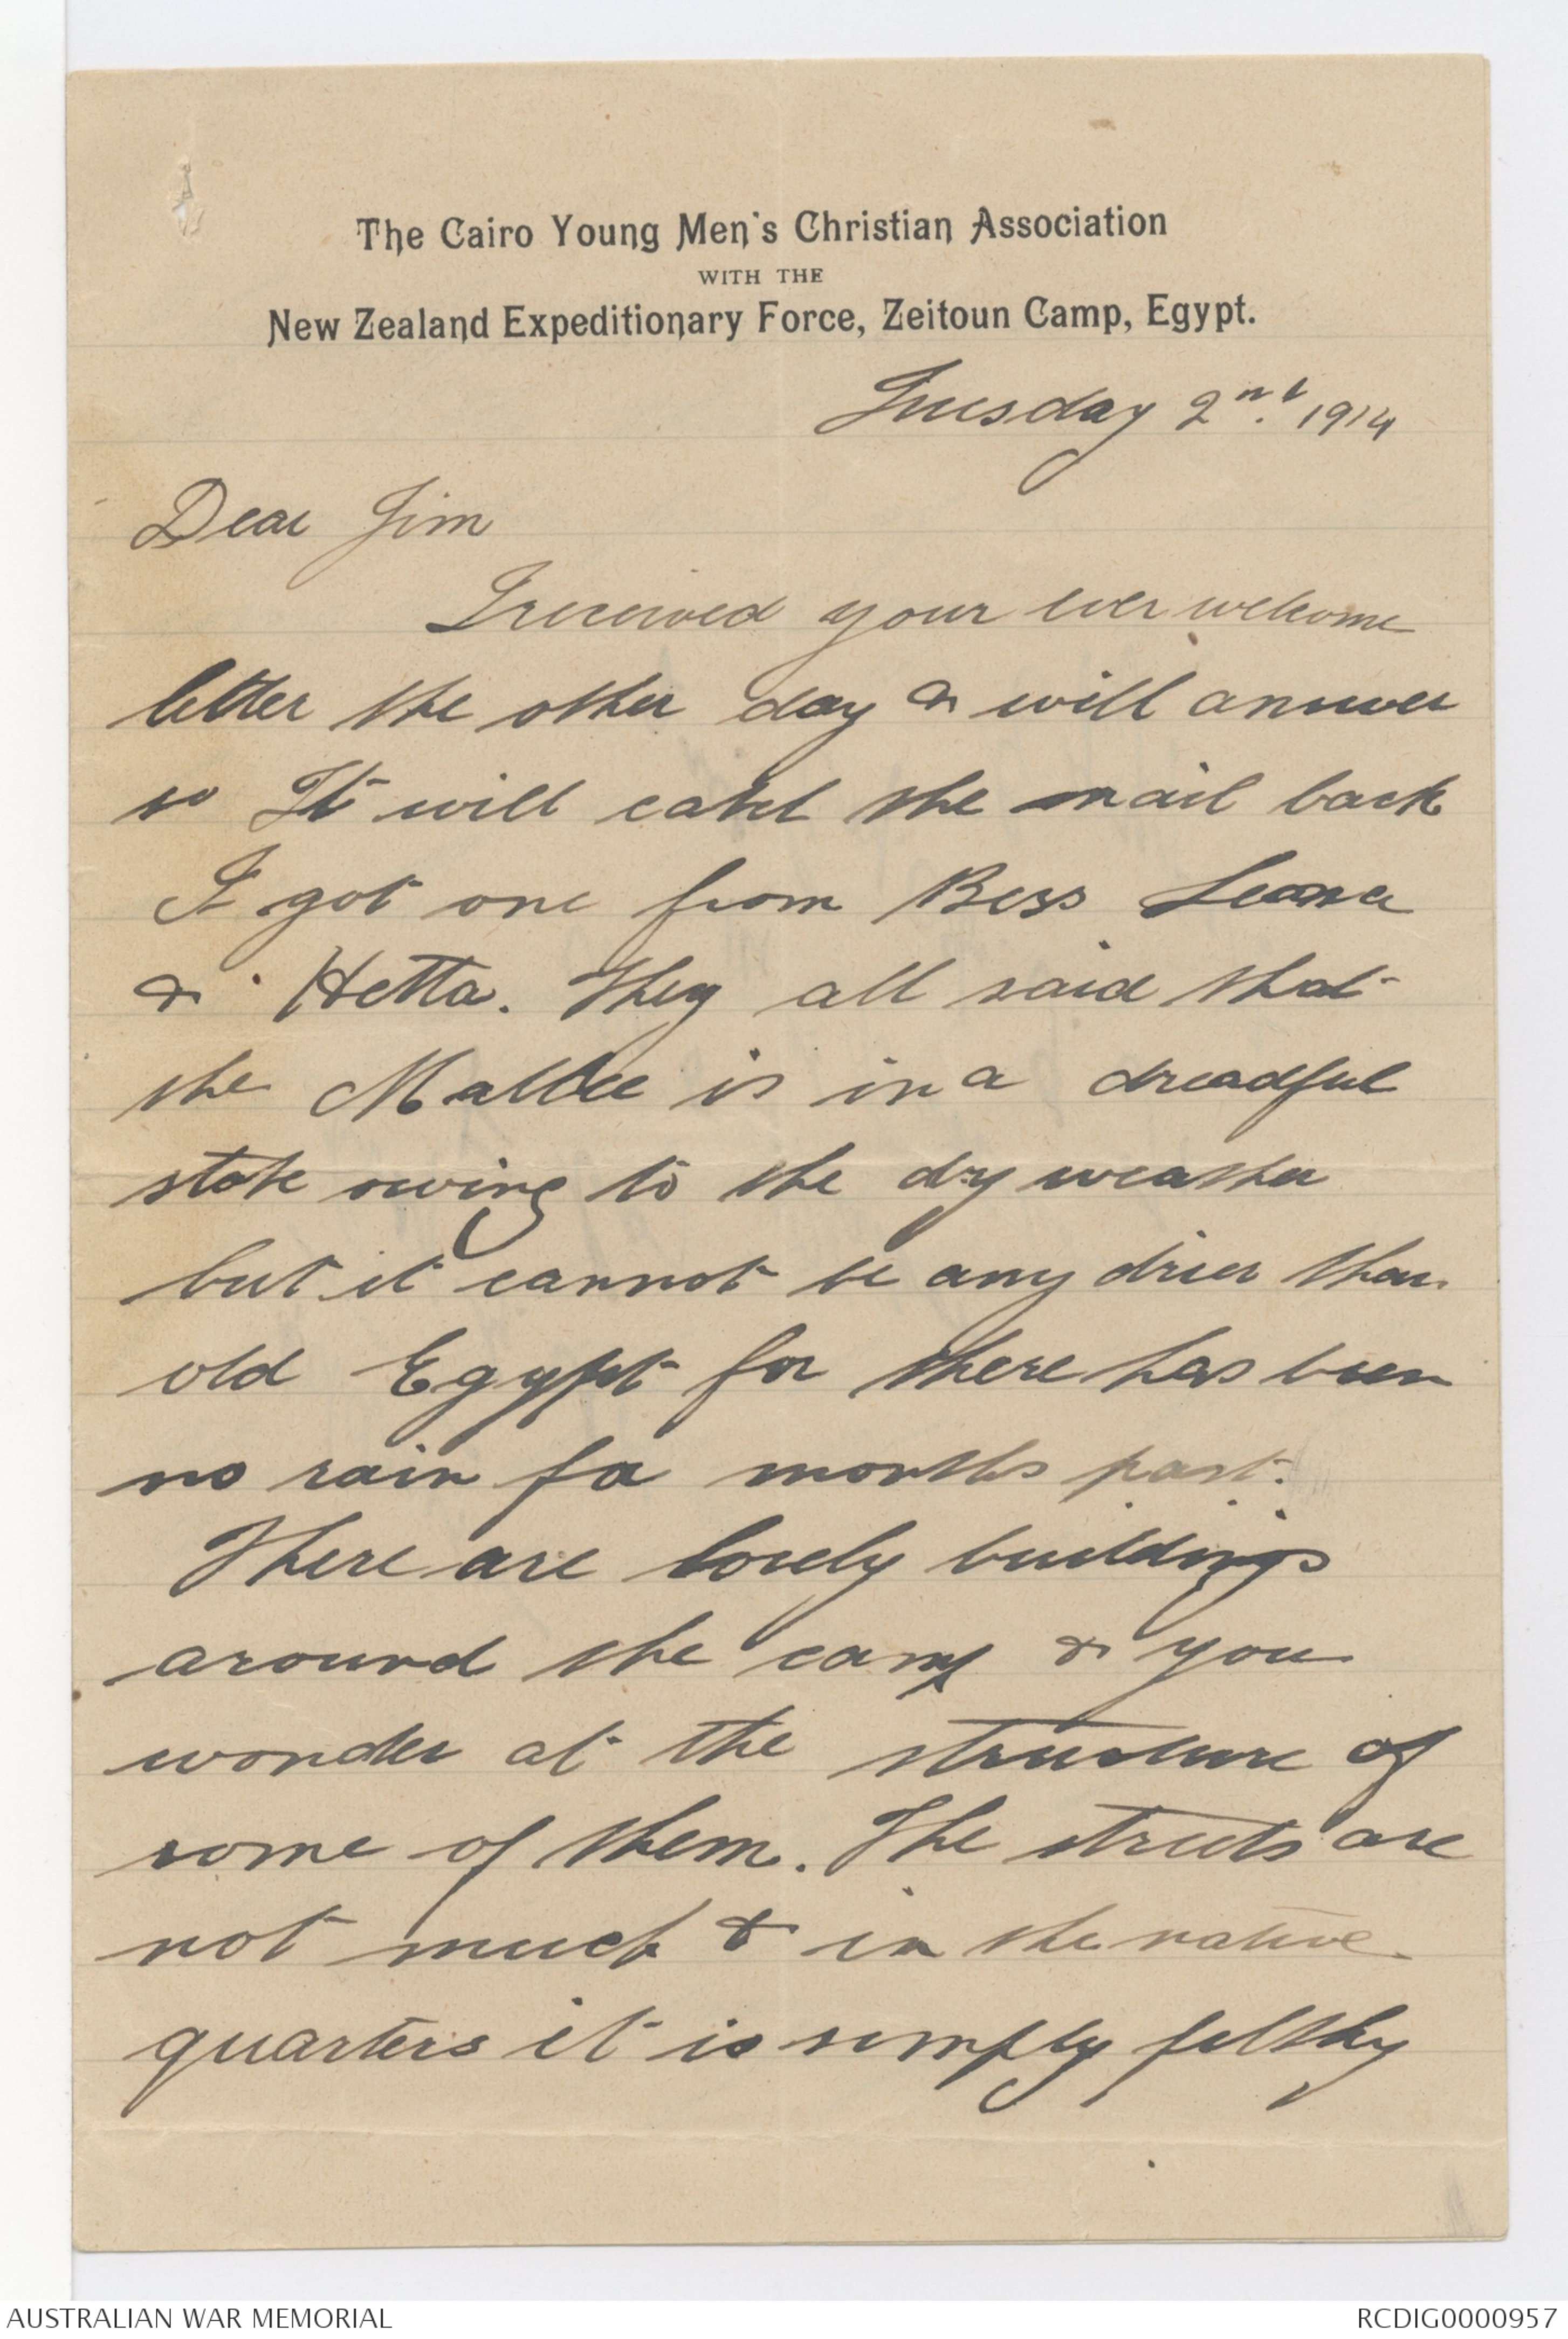 The Cairo Young Men's Christian Association
WITH THE
New Zealand Expeditionary Force, Zeitoun Camp, Egypt.
Tuesday 2nd. 1914
Dear Jim
I received your ever welcome
letter the other day & will answer
so It will catch the mail back
I got one from Bess Leona
& Hetta. They all said that
the Mallee is in a dreadful
state owing to the dry weather
but it cannot be any drier than
old Egypt for there has been
no rain for months past.
There are lovely buildings
around the camp & you
wonder at the structure of
some of them. The streets are
not much & in the native
quarters it is simply filthy
AUSTRALIAN WAR MEMORIAL
RCDIG0000957